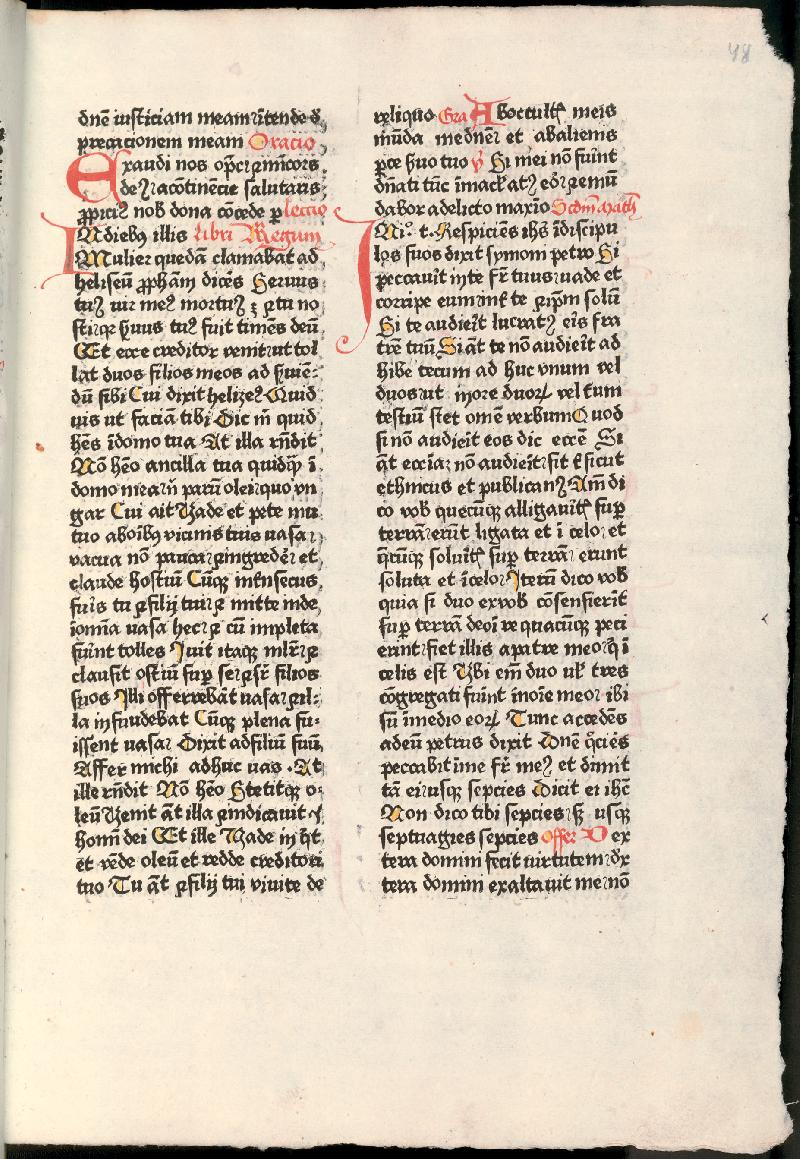 48
dnē iusticiam meam ītende d̄
precacionem meam Oracio
Exaudi nos op̄c ⁊ mīcors
de ⁊ racōtinēcie salutaris
ꝓpiciꝰ nob dona cōcede ꝑ lectio
INdiebꝰ illis libri Regum
Mulier quedā clamabat ad
heliseū ꝓpham dicēs Seruus
tuꝰ uir meꝰ mortuꝰ ē ⁊ tu no
sti qꝛ ẜuus tuꝰ fuit timēs deū
Et ecce creditor venit ut tol
lat duos filios meos ad ẜuiē-
dū sibi Cui dixit helizeꝰ Quid
uis ut faciā tibi Dic m̄ quid
hēs ī domo tua At illa rñdit
Nō hēo ancilla tua quidꝙ̄ ī
domo mea n̄ parū olei quo vn
gar Cui ait Vade et pete mu
tuo aboībꝰ vicinis tuis uasa
vacua nō pauca ⁊ ingredēr et
claude hostiū Cūqꝫ int̄nsecus
fuīs tu ⁊ filij tui ⁊ mitte inde
ī omīa uasa hec ⁊ cū impleta
fūint tolles Iuit itaqꝫ ml̄r ⁊
clausit ostiū suꝑ se ⁊ sr̄ filios
suos Illi offerrebāt uasa ⁊ il-
la infundebat Cūqꝫ plena fu-
issent uasa Dixit ad filiū suū
Affer michi adhuc uas . At
ille rñdit Nō hēo Stetitqꝫ o-
leū Venit āt illa ⁊ indicauit
homī dei Et ille Vade inq̄t
et vēde oleū et redde creditori
tuo Tu āt ⁊ filij tui viuite de
reliquo Gra Aboccultꝭ meis
mūda me dn̄e et abalienis
ꝑce ẜuo tuo ℣ Si mei nō fūint
dn̄ati tūc īmaclatꝰ eo ⁊ emū
dabor a delicto maxīo Scdm̄ math
INi. t. Respiciēs ihs̄ ī discipu
los suos dixit symoni petro Si
peccauīt in te fr̄ tuus uade et
corripe eum int̄ te ⁊ ip̄m solū
Si te audieīt lucratꝰ eīs fra
trē tuū Si āt te nō audieīt ad
hibe tecum ad huc vnum vel
duos ut in ore duoꝝ vel t̄um
testiū stet om̄e verbum Quod
si nō audieīt eos dic ecc̄e Si
āt ecc̄iaꝫ nō audieīt sit t̄ sicut
ethnicus et publicanꝰ Am̄ di
co vob quecūqꝫ alligauītꝭ suꝑ
terrā erūt ligata et ī celo et
q̄cūqꝫ soluītꝭ suꝑ terrā erunt
soluta et ī celo Iterū dico vob
quia si duo ex vob cōsensierīt
suꝑ terrā deoī re quacūqꝫ peci
erint fiet illis a patre meo q̄ ī
celis est Vbi eīm duo ul̄ tres
cōgregati fūint ī noīe meo ibi
sū ī medio eoꝝ Tunc accedēs
ad eū petrus dixit Dn̄e q̊ciēs
peccabit ī me fr̄ meꝰ et dimit
tā ei usqꝫ sepcies Dicit ei ihē
Non dico tibi sepcies sꝫ usqꝫ
septuagies sepcies offer Dex
tera domini fecit uirtutem dx̄
tera domini exaltauit me nō